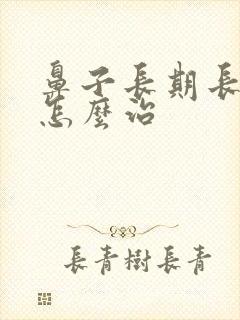 鼻子長期長
怎麼治
長青樹長青